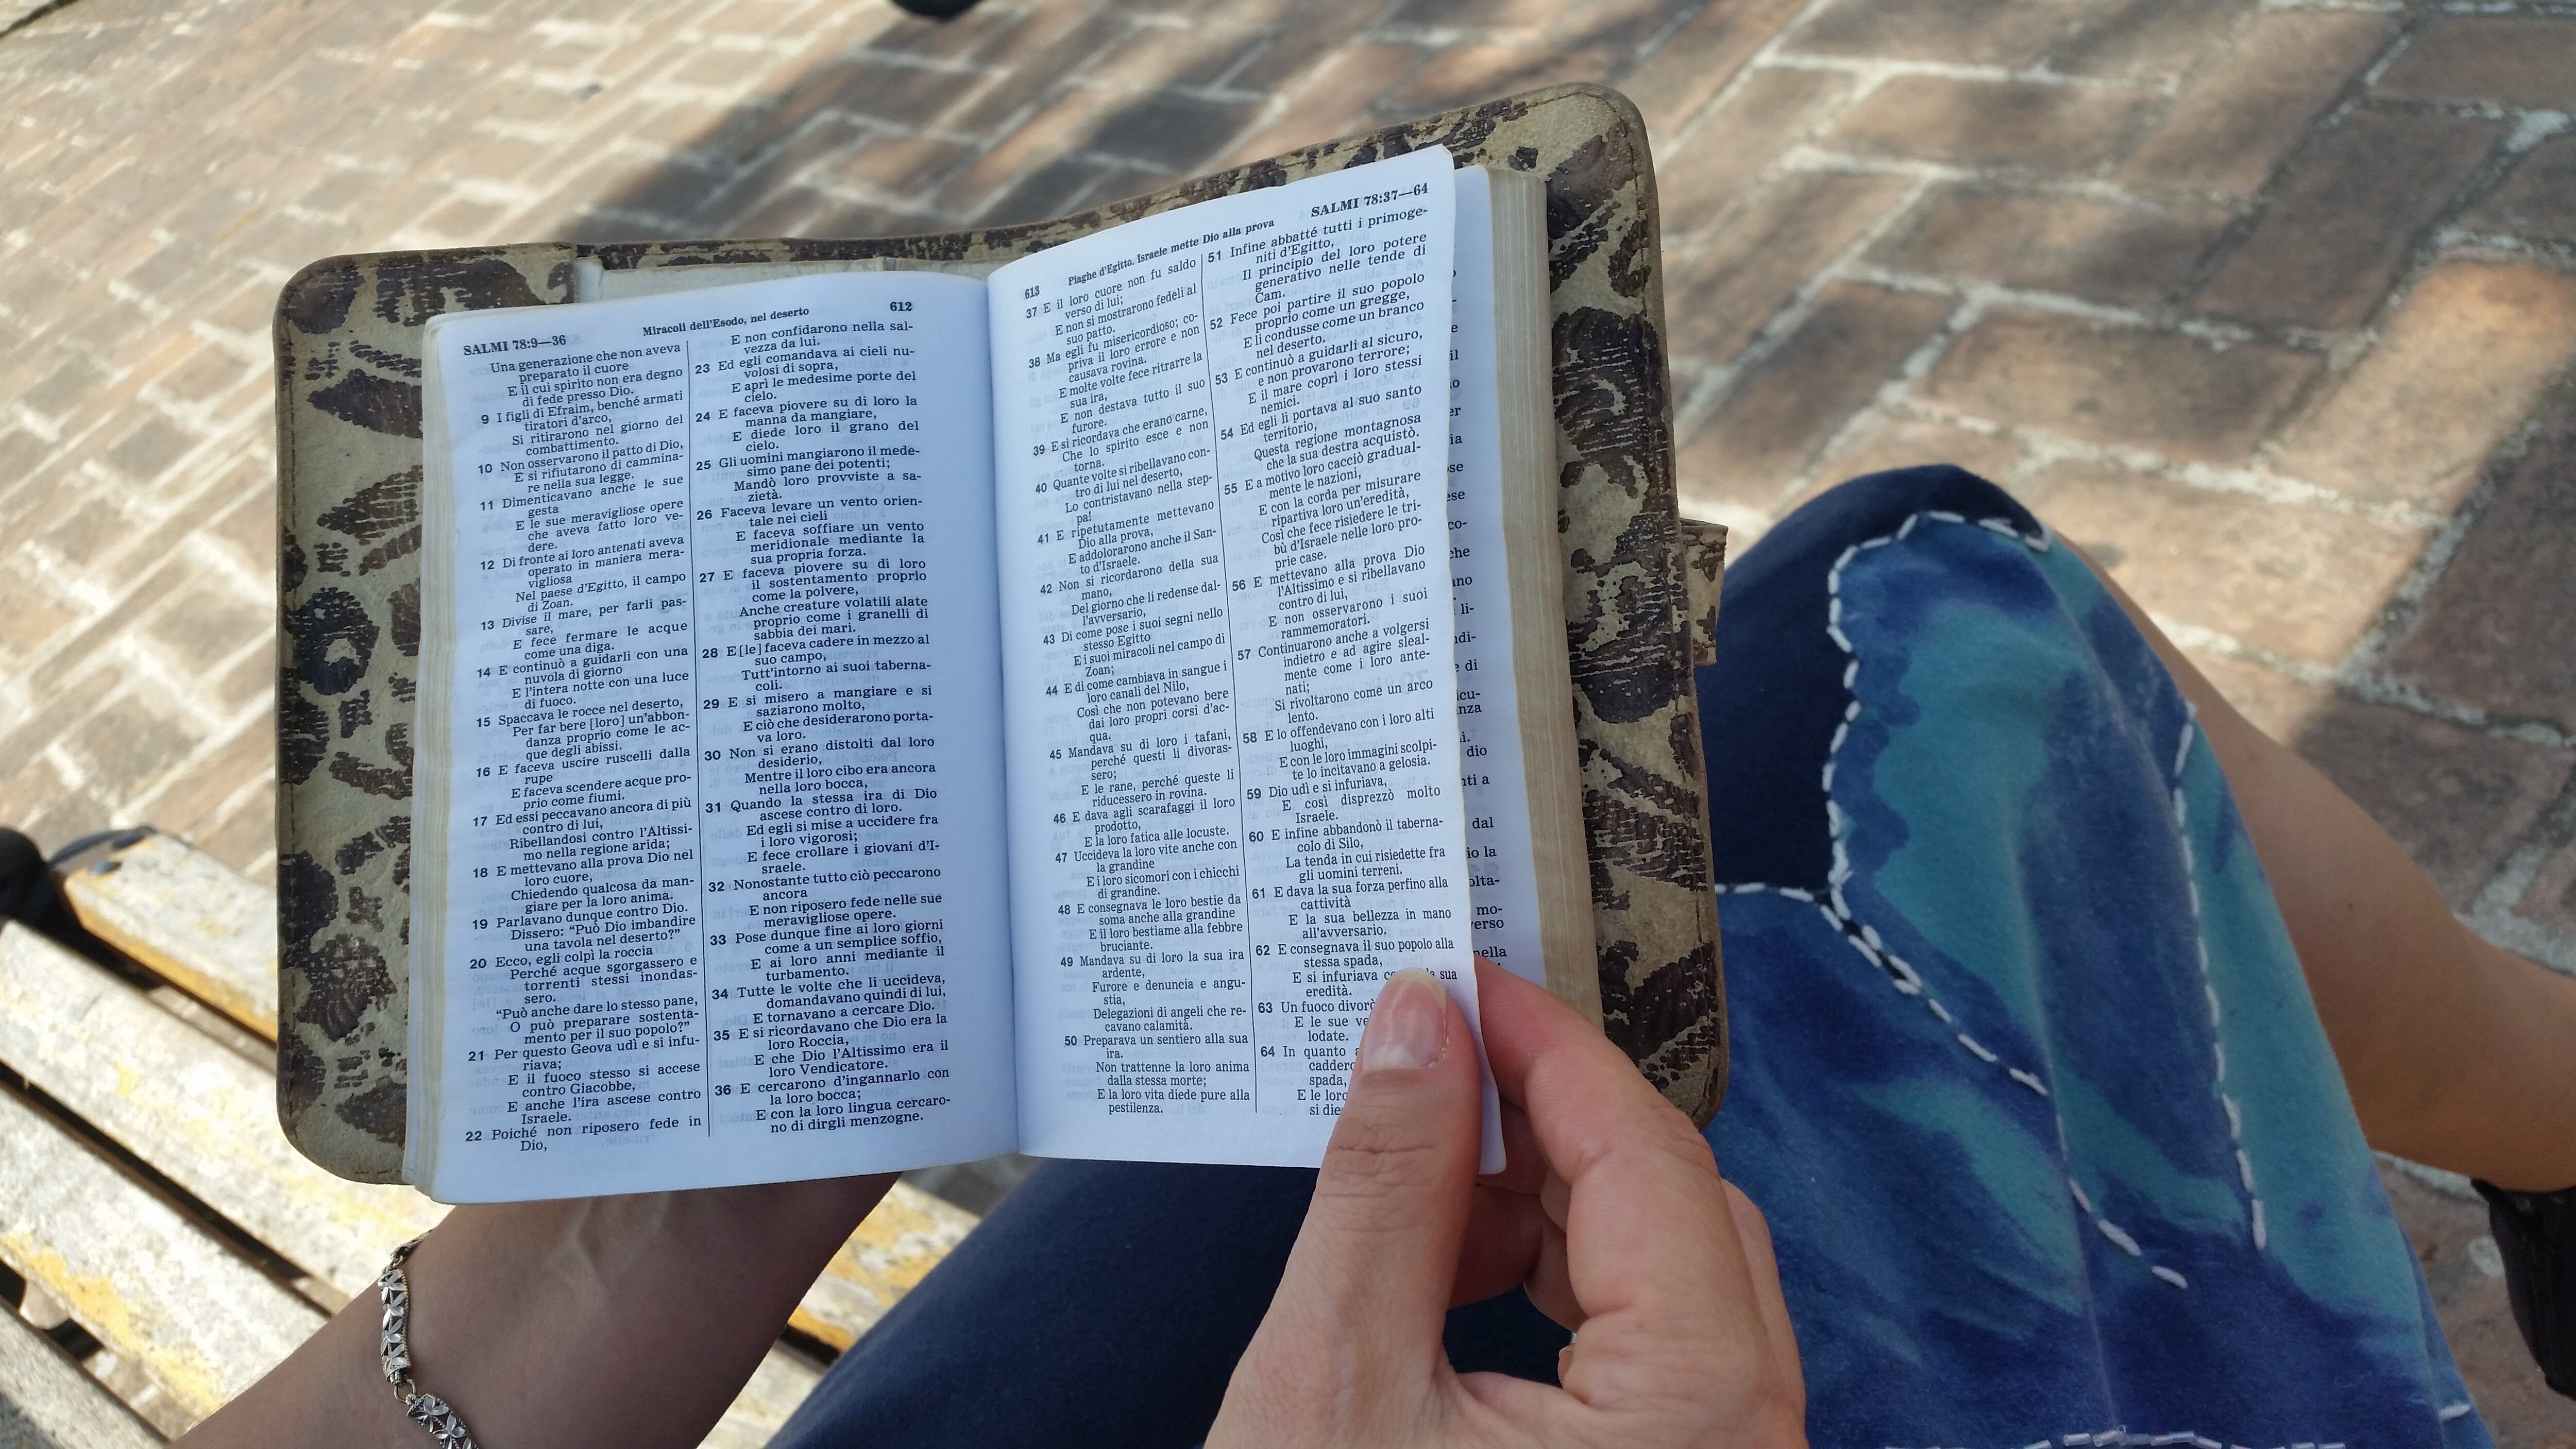 SALMI 78:9—36
Miracoli dell'Esodo, nel deserto
612
Una generazione che non aveva
preparato il cuore
E il cui spirito non era degno
di fede presso Dio.
9 I figli di Efraim, benché armati
tiratori d'arco,
Si ritirarono nel giorno del
combattimento.
10 Non osservarono il patto di Dio,
E si rifiutarono di cammina-
re nella sua legge.
11 Dimenticavano anche le sue
gesta
E le sue meravigliose opere
che aveva fatto loro ve-
dere.
12 Di fronte ai loro antenati aveva
operato in maniera mera-
vigliosa
Nel paese d'Egitto, il campo
di Zoan.
13 Divise il mare, per farli pas-
sare,
E fece fermare le acque
come una diga.
14 E continuò a guidarli con una
nuvola di giorno
E l'intera notte con una luce
di fuoco.
15 Spaccava le rocce nel deserto,
Per far bere [loro] un'abbon-
danza proprio come le ac-
que degli abissi.
16 E faceva uscire ruscelli dalla
rupe
E faceva scendere acque pro-
prio come fiumi.
17 Ed essi peccavano ancora di più
contro di lui,
Ribellandosi contro l'Altissi-
mo nella regione arida;
18 E mettevano alla prova Dio nel
loro cuore,
Chiedendo qualcosa da man-
giare per la loro anima.
19 Parlavano dunque contro Dio.
Dissero: “Può Dio imbandire
una tavola nel deserto?”
20 Ecco, egli colpì la roccia
Perché acque sgorgassero e
torrenti stessi inondas-
sero.
“Può anche dare lo stesso pane,
O può preparare sostenta-
mento per il suo popolo?”
21 Per questo Geova udì e si infu-
riava;
E il fuoco stesso si accese
contro Giacobbe,
E anche l'ira ascese contro
Israele.
22 Poiché non riposero fede in
Dio,
E non confidarono nella sal-
vezza da lui.
23 Ed egli comandava ai cieli nu-
volosi di sopra,
E aprì le medesime porte del
cielo.
24 E faceva piovere su di loro la
manna da mangiare,
E diede loro il grano del
cielo.
25 Gli uomini mangiarono il mede-
simo pane dei potenti;
Mandò loro provviste a sa-
zietà.
26 Faceva levare un vento orien-
tale nei cieli
E faceva soffiare un vento
meridionale mediante la
sua propria forza.
27 E faceva piovere su di loro
il sostentamento proprio
come la polvere,
Anche creature volatili alate
proprio come i granelli di
sabbia dei mari.
28 E [le] faceva cadere in mezzo al
suo campo,
Tutt'intorno ai suoi taberna-
coli.
29 E si misero a mangiare e si
saziarono molto,
E ciò che desiderarono porta-
va loro.
30 Non si erano distolti dal loro
desiderio,
Mentre il loro cibo era ancora
nella loro bocca,
31 Quando la stessa ira di Dio
ascese contro di loro.
Ed egli si mise a uccidere fra
i loro vigorosi;
E fece crollare i giovani d'I-
sraele.
32 Nonostante tutto ciò peccarono
ancora
E non riposero fede nelle sue
meravigliose opere.
33 Pose dunque fine ai loro giorni
come a un semplice soffio,
E ai loro anni mediante il
turbamento.
34 Tutte le volte che li uccideva,
domandavano quindi di lui,
E tornavano a cercare Dio.
35 E si ricordavano che Dio era la
loro Roccia,
E che Dio l'Altissimo era il
loro Vendicatore.
36 E cercarono d'ingannarlo con
la loro bocca;
E con la loro lingua cercaro-
no di dirgli menzogne.
613
Piaghe d'Egitto. Israele mette Dio alla prova
SALMI 78:37—64
37 E il loro cuore non fu saldo
verso di lui;
E non si mostrarono fedeli al
suo patto.
38 Ma egli fu misericordioso; co-
priva il loro errore e non
causava rovina.
E molte volte fece ritrarre la
sua ira,
E non destava tutto il suo
furore.
39 E si ricordava che erano carne,
Che lo spirito esce e non
torna.
40 Quante volte si ribellavano con-
tro di lui nel deserto,
Lo contristavano nella step-
pa!
41 E ripetutamente mettevano
Dio alla prova,
E addolorarono anche il San-
to d'Israele.
42 Non si ricordarono della sua
mano,
Del giorno che li redense dal-
l'avversario,
43 Di come pose i suoi segni nello
stesso Egitto
E i suoi miracoli nel campo di
Zoan;
44 E di come cambiava in sangue i
loro canali del Nilo,
Così che non potevano bere
dai loro propri corsi d'ac-
qua.
45 Mandava su di loro i tafani,
perché questi li divoras-
sero;
E le rane, perché queste li
riducessero in rovina.
46 E dava agli scarafaggi il loro
prodotto,
E la loro fatica alle locuste.
47 Uccideva la loro vite anche con
la grandine
E i loro sicomori con i chicchi
di grandine.
48 E consegnava le loro bestie da
soma anche alla grandine
E il loro bestiame alla febbre
bruciante.
49 Mandava su di loro la sua ira
ardente,
Furore e denuncia e angu-
stia,
Delegazioni di angeli che re-
cavano calamità.
50 Preparava un sentiero alla sua
ira.
Non trattenne la loro anima
dalla stessa morte;
E la loro vita diede pure alla
pestilenza.
51 Infine abbatté tutti i primoge-
niti d'Egitto,
Il principio del loro potere
generativo nelle tende di
Cam.
52 Fece poi partire il suo popolo
proprio come un gregge,
E li condusse come un branco
nel deserto.
53 E continuò a guidarli al sicuro,
e non provarono terrore;
E il mare coprì i loro stessi
nemici.
54 Ed egli li portava al suo santo
territorio,
Questa regione montagnosa
che la sua destra acquistò.
55 E a motivo loro cacciò gradual-
mente le nazioni,
E con la corda per misurare
ripartiva loro un'eredità,
Così che fece risiedere le tri-
bù d'Israele nelle loro pro-
prie case.
56 E mettevano alla prova Dio
l'Altissimo e si ribellavano
contro di lui,
E non osservarono i suoi
rammemoratori.
57 Continuarono anche a volgersi
indietro e ad agire sleal-
mente come i loro ante-
nati;
Si rivoltarono come un arco
lento.
58 E lo offendevano con i loro alti
luoghi,
E con le loro immagini scolpi-
te lo incitavano a gelosia.
59 Dio udì e si infuriava,
E così disprezzò molto
Israele.
60 E infine abbandonò il taberna-
colo di Silo,
La tenda in cui risiedette fra
gli uomini terreni.
61 E dava la sua forza perfino alla
cattività
E la sua bellezza in mano
all'avversario.
62 E consegnava il suo popolo alla
stessa spada,
E si infuriava sua
eredità.
63 Un fuoco divorò
E le sue
lodate.
64 In quanto
spada,
E le
si